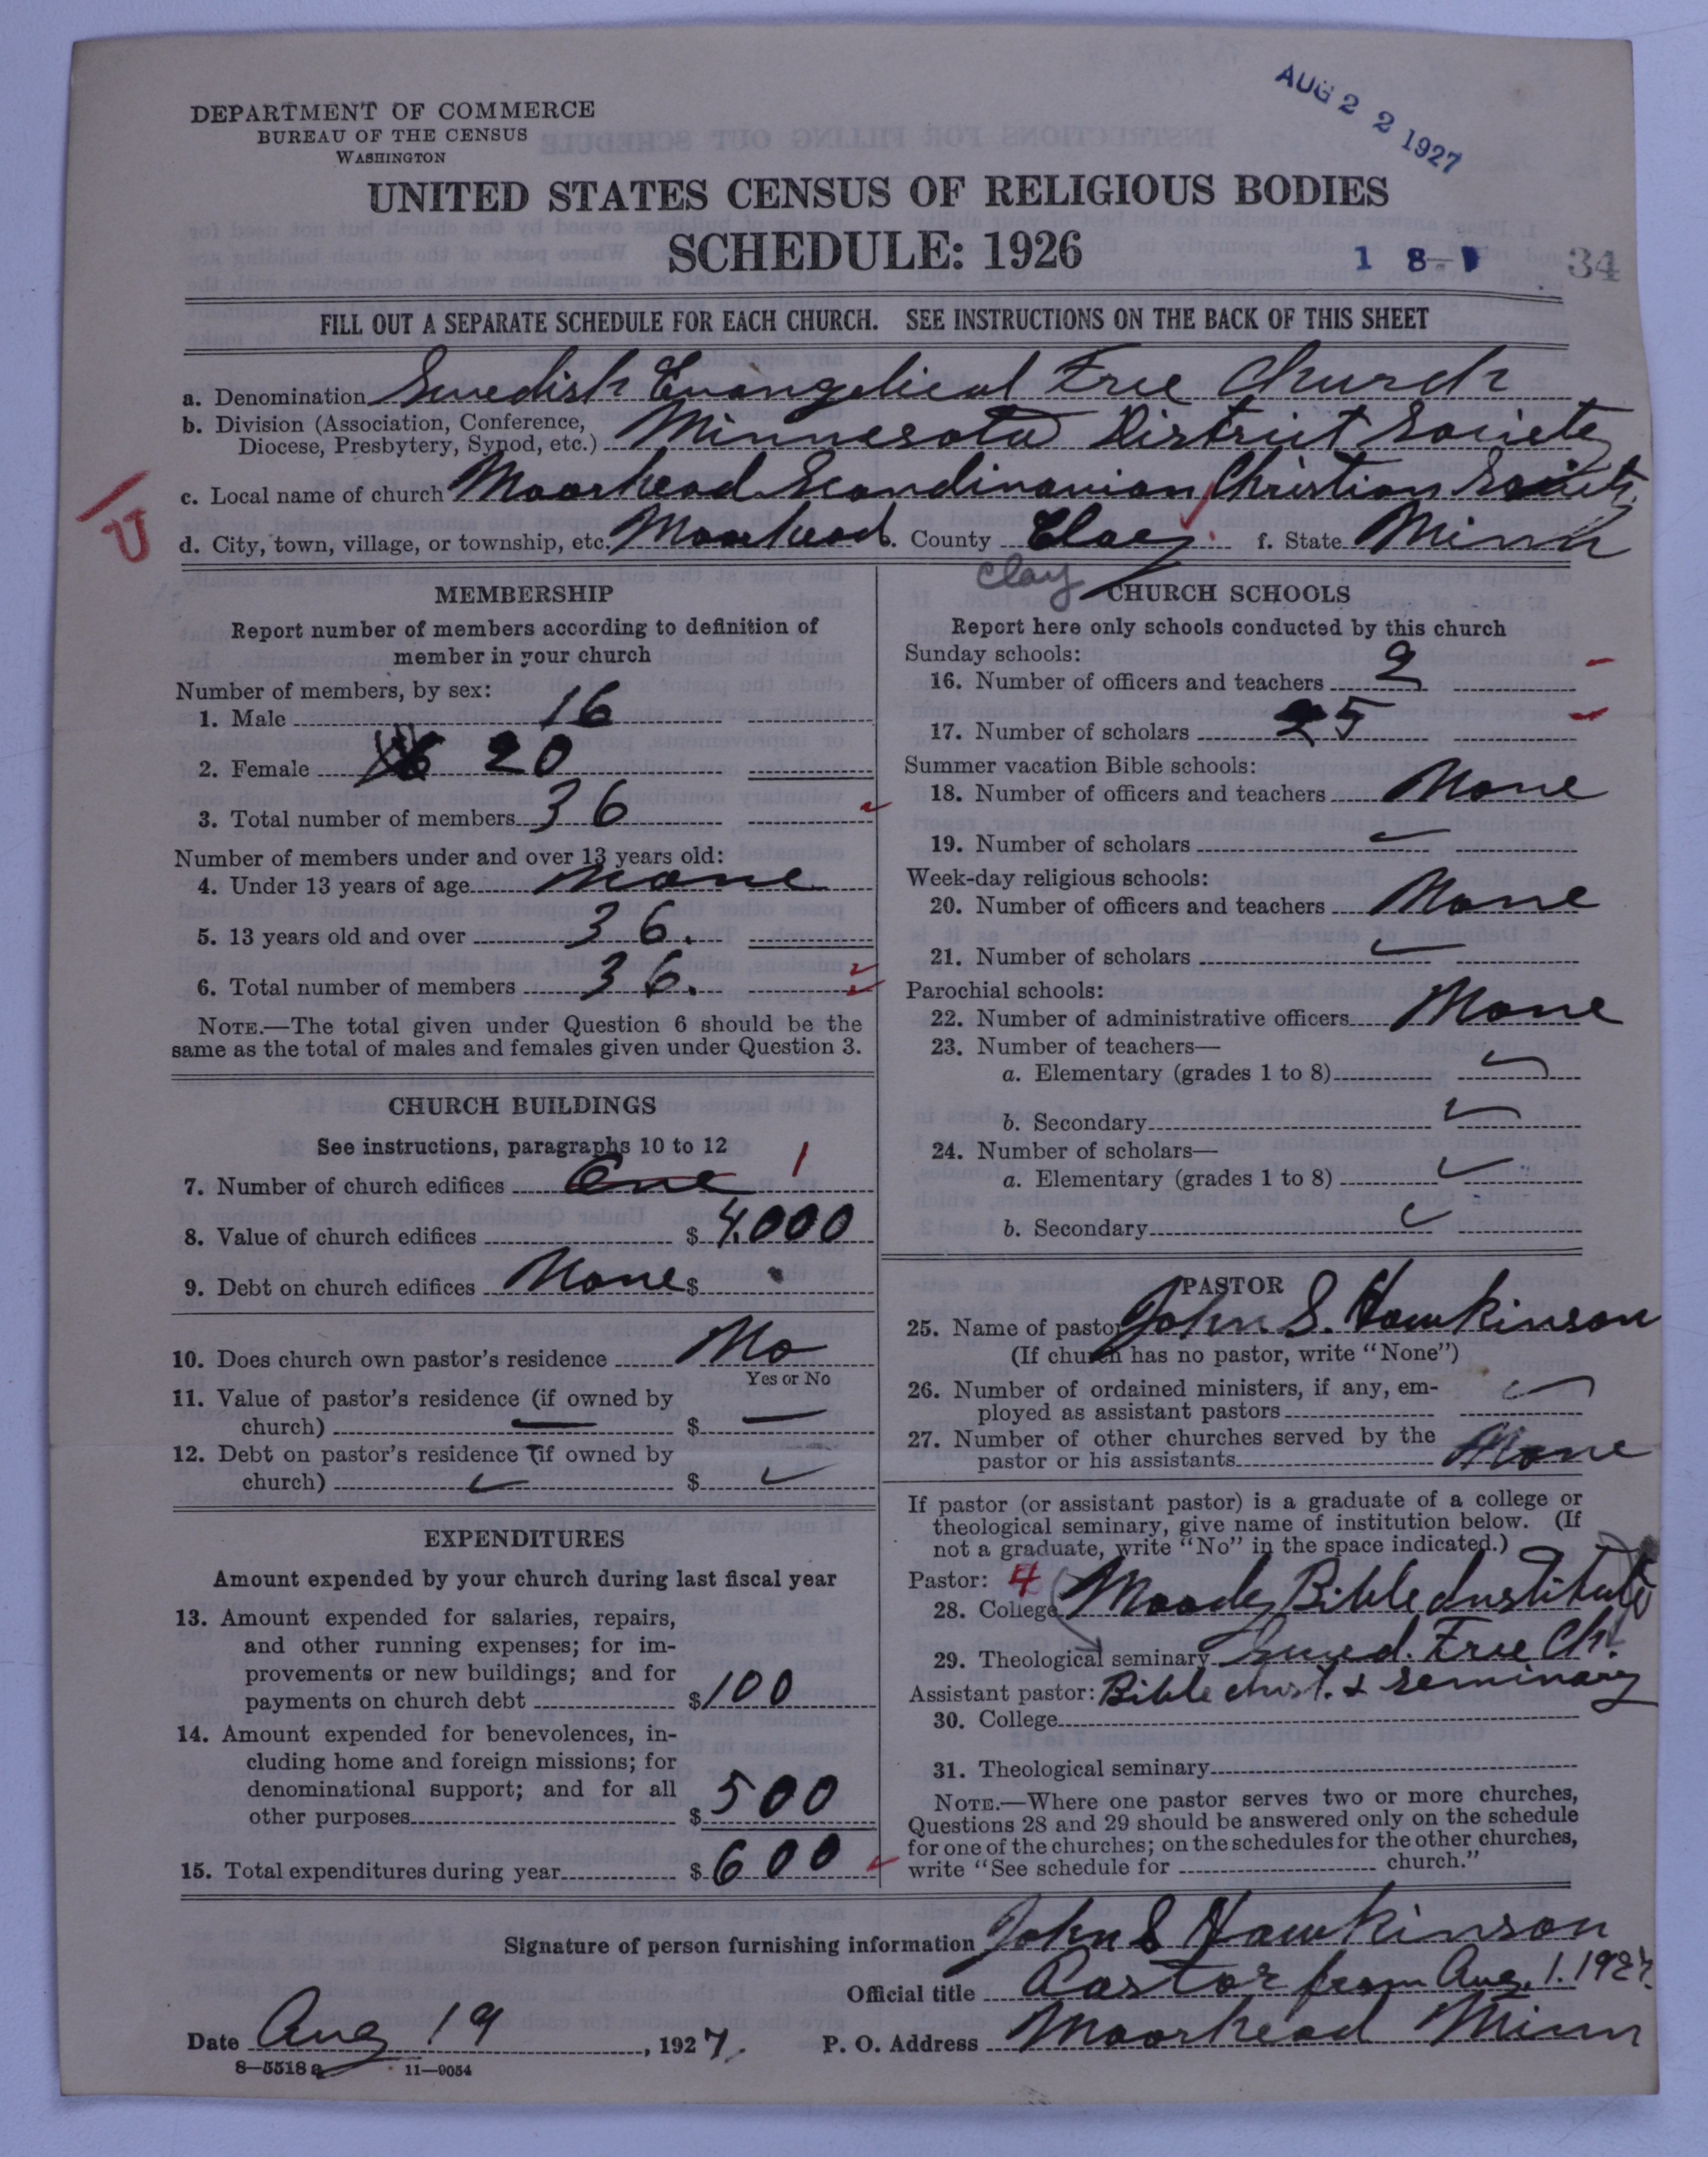 AUG 22 1927
DEPARTMENT OF COMMERCE
BUREAU OF THE CENSUS
WASHINGTON
UNITED STATES CENSUS OF RELIGIOUS BODIES
SCHEDULE: 1926
1 8-
34
FILL OUT A SEPARATE SCHEDULE FOR EACH CHURCH. SEE INSTRUCTIONS ON THE BACK OF THIS SHEET
a. Denomination Swedish Evangelical Free Church
b. Division (Association, Conference,
Diocese, Presbytery, Synod, etc.) Minnesota District Society
c. Local name of church Moorhead Scandinavian Christian Society
U
d. City, town, village, or township, etc. Moorhead. County Clay f. State Minn
Clay
MEMBERSHIP
Report number of members according to definition of
member in your church
Number of members, by sex:
1. Male 16
2. Female 20
3. Total number of members 36
Number of members under and over 13 years old:
4. Under 13 years of age None
5. 13 years old and over 36.
6. Total number of members 36.
NOTE.—The total given under Question 6 should be the
same as the total of males and females given under Question 3.
CHURCH BUILDINGS
See instructions, paragraphs 10 to 12
7. Number of church edifices One 1
8. Value of church edifices $ 4.000
9. Debt on church edifices None $
10. Does church own pastor's residence No
Yes or No
11. Value of pastor's residence (if owned by
church) — $ —
12. Debt on pastor's residence (if owned by
church) $
EXPENDITURES
Amount expended by your church during last fiscal year
13. Amount expended for salaries, repairs,
and other running expenses; for im-
provements or new buildings; and for
payments on church debt $100
14. Amount expended for benevolences, in-
cluding home and foreign missions; for
denominational support; and for all
other purposes $ 500
15. Total expenditures during year $ 600
CHURCH SCHOOLS
Report here only schools conducted by this church
Sunday schools:
16. Number of officers and teachers 2
17. Number of scholars 25
Summer vacation Bible schools:
18. Number of officers and teachers None
19. Number of scholars
Week-day religious schools:
20. Number of officers and teachers None
21. Number of scholars
Parochial schools:
22. Number of administrative officers None
23. Number of teachers—
a. Elementary (grades 1 to 8)
b. Secondary
24. Number of scholars—
a. Elementary (grades 1 to 8)
b. Secondary
PASTOR
25. Name of pastor John S. Hawkinson
(If church has no pastor, write "None")
26. Number of ordained ministers, if any, em-
ployed as assistant pastors
27. Number of other churches served by the
pastor or his assistants None
If pastor (or assistant pastor) is a graduate of a college or
theological seminary, give name of institution below. (If
not a graduate, write "No" in the space indicated.)
Pastor: 4
28. College Moody Bible Institute
29. Theological seminary Swed. Free Ch.
Assistant pastor: Bible Inst. & Seminary
30. College
31. Theological seminary
NOTE.—Where one pastor serves two or more churches,
Questions 28 and 29 should be answered only on the schedule
for one of the churches; on the schedules for the other churches,
write "See schedule for church."
Signature of person furnishing information John S Hawkinson
Official title Pastor from Aug. 1. 1927.
Date Aug 19, 1927. P. O. Address Moorhead Minn
8—5518a 11—9054